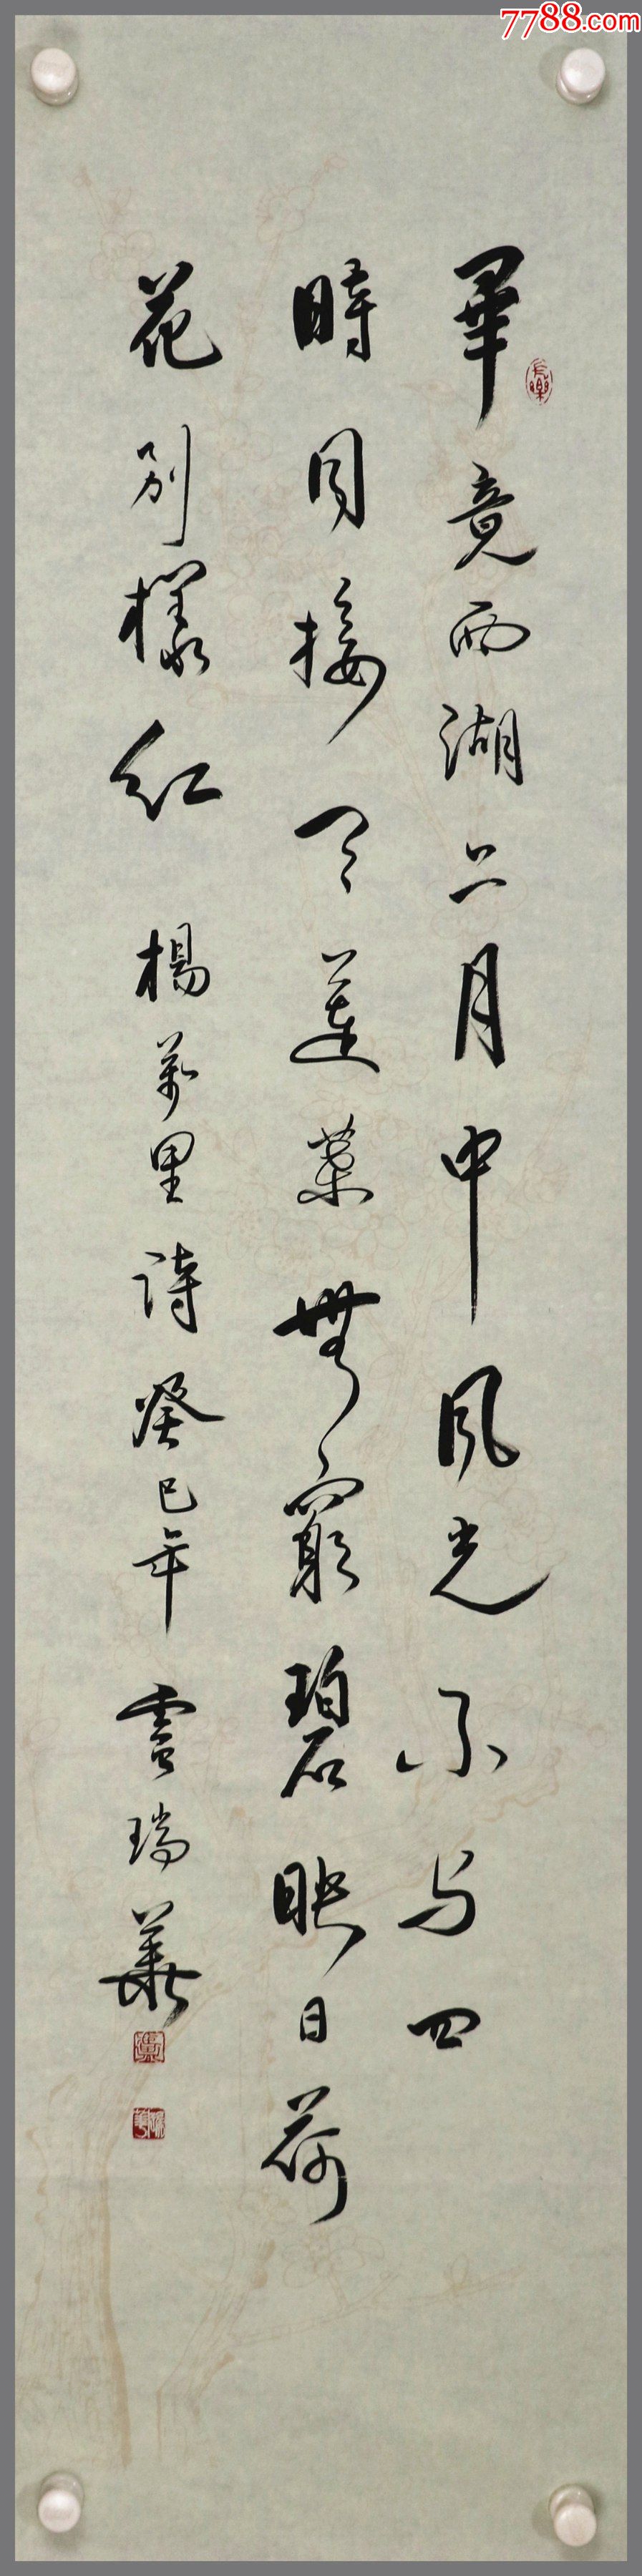 7788.com
畢竟西湖六月中風光不与四
時同接天蓮葉無窮碧映日荷
花別樣紅 楊萬里詩 癸巳年 雲瑞華
長樂